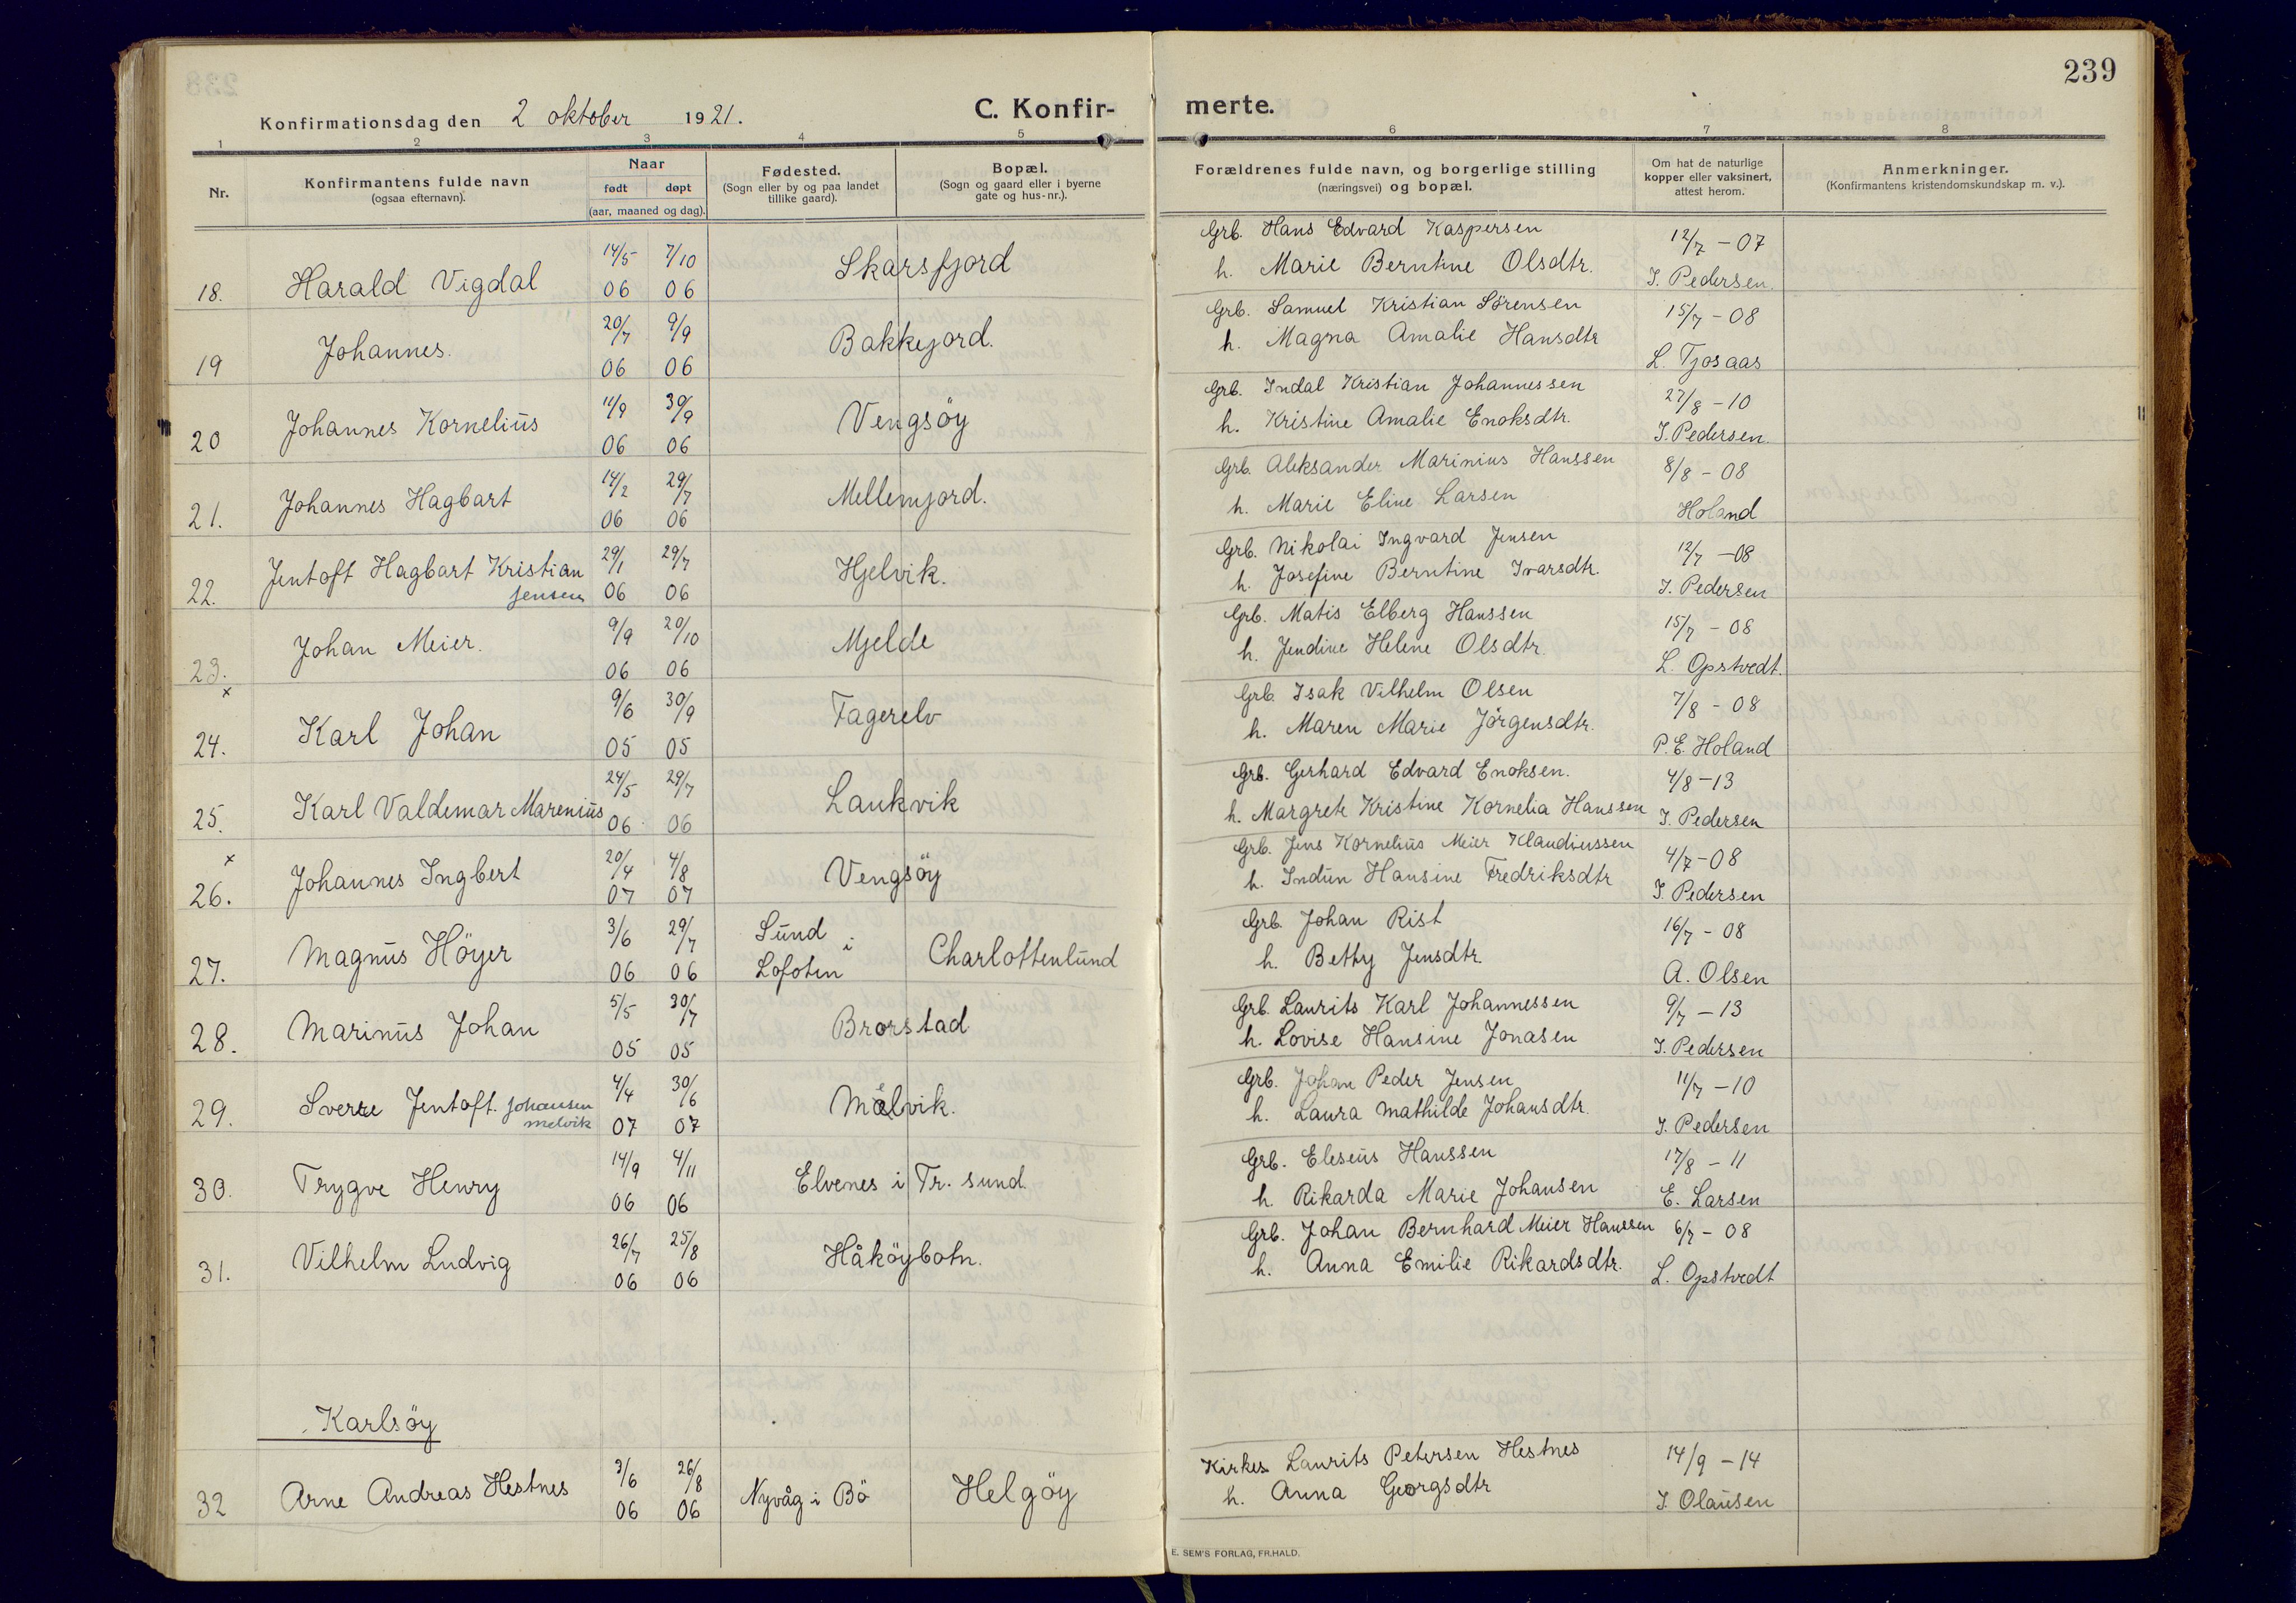 239
Konfirmationsdag den 2 oktober 1921.
C. Konfir-
merte.
1 2 3 4 5 6 7 8
Nr.
Konfirmantens fulde navn
(ogsaa efternavn).
Naar
født døpt
(aar, maaned og dag).
Fødested.
(Sogn eller by og paa landet
tillike gaard).
Bopæl.
(Sogn og gaard eller i byerne
gate og hus-nr.).
Forældrenes fulde navn, og borgerlige stilling
(næringsvei) og bopæl.
Om hat de naturlige
kopper eller vaksinert,
attest herom.
Anmerkninger.
(Konfirmantens kristendomskundskap m. v.).
14/5 7/10 Grb. Hans Edvard Kaspersen 12/7 - 07
18. Harald Vigdal 06 06 Skarsfjord h. Marie Berntine Olsdtr. I. Pedersen.
20/7 9/9 Grb. Samuel Kristian Sörensen 15/7 - 08
19 Johannes. 06 06 Bakkejord. h. Magna Amalie Hansdtr L. Tjosaas
11/9 30/9 Grb. Indal Kristian Johannessen 27/8 - 10
20 Johannes Kornelius 06 06 Vengsöy h. Kristine Amalie Enoksdtr. I. Pedersen.
14/2 29/7 Grb. Aleksander Marinius Hanssen 8/8 - 08
21. Johannes Hagbart 06 06 Mellemjord. h. Marie Eline Larsen Holand
29/1 29/7 Grb. Nikolai Ingvard Jensen 12/7 - 08
22. Jentoft Hagbart Kristian Jensen 06 06 Hjelvik. h. Josefine Berntine Ivarsdtr. I. Pedersen
9/9 20/10 Grb. Matis Elberg Hanssen 15/7 - 08
23. Johan Meier. 06 06 Mjelde h. Jendine Helene Olsdtr. L. Opstvedt.
x 9/6 30/9 Grb. Isak Vilhelm Olsen 7/8 - 08
24. Karl Johan 05 05 Fagerelv h. Maren Marie Jörgensdtr. P. E. Holand
24/5 29/7 Grb. Gerhard Edvard Enoksen. 4/8 - 13
25. Karl Valdemar Marenius 06 06 Laukvik h. Margrete Kristine Kornelia Hanssen I. Pedersen
x 20/4 4/8 Grb. Jens Kornelius Meier Klaudiussen 4/7 - 08
26. Johannes Ingbert 07 07 Vengsöy h. Indun Hansine Fredriksdtr I. Pedersen
3/6 29/7 Sund i Grb. Johan Rist 16/7 - 08
27. Magnus Höyer 06 06 Lofoten Charlottenlund h. Betty Jensdtr. A. Olsen
5/5 30/7 Grb. Laurits Karl Johannessen 9/7 - 13
28. Marinus Johan 05 05 Brorstad h. Lovise Hansine Jonasen I. Pedersen
4/4 30/6 Grb. Johan Peder Jensen 11/7 - 10
29. Sverre Jentoft. Johansen melvik 07 07 Målvik. h. Laura Mathilde Johansdtr. I. Pedersen
14/9 4/11 Grb. Eleseus Hanssen 17/8 - 11
30. Trygve Henry 06 06 Elvenes i Tr. sund. h. Rikarda Marie Johansen E. Larsen
26/7 25/8 Grb. Johan Bernhard Meier Hanssen 6/7 - 08
31. Vilhelm Ludvig 06 06 Håköybotn. h. Anna Emilie Rikardsdtr. L. Opstvedt
Karlsöy
3/6 26/8 Kirkes. Laurits Petersen Hestnes 14/9 - 14
32 Arne Andreas Hestnes 06 06 Nyvåg i Bö Helgöy h. Anna Georgsdtr I. Olausen
E. SEM'S FORLAG, FR.HALD.